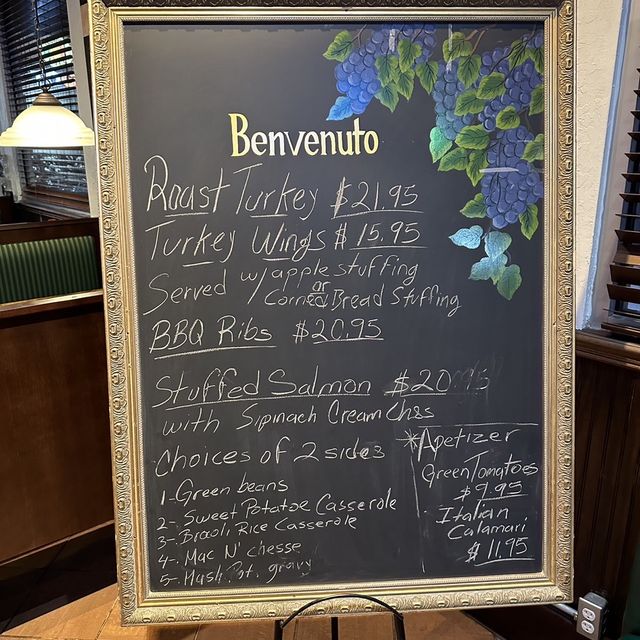 Benvenuto
Roast Turkey $21.95
Turkey Wings $15.95
Served w/ apple stuffing
or
Corned Bread Stuffing
BBQ Ribs $20.95
Stuffed Salmon $20.95
with Sipinach Cream Chss
Choices of 2 sides
1-Green beans
2-. Sweet Potatoe Casserole
3-Braoli Rice Casserole
4-. Mac N' chesse
5-. Mash. Pot. gravy
*Apetizer
Green Tomatoes
$9.95
Italian
Calamari
$11.95